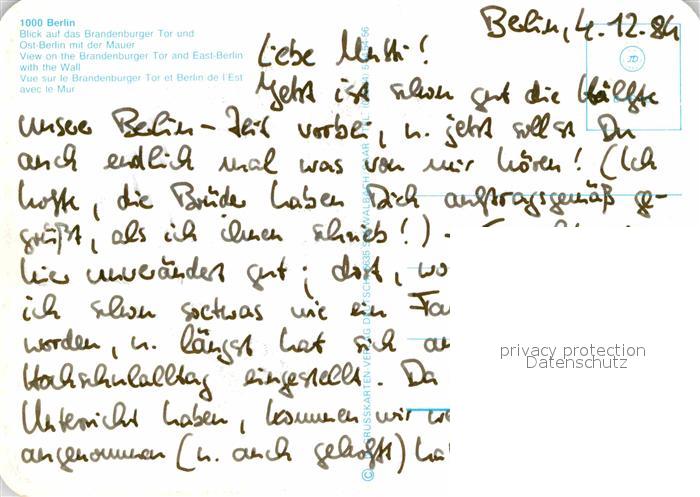 1000 Berlin
Blick auf das Brandenburger Tor und
Ost-Berlin mit der Mauer
View on the Brandenburger Tor and East-Berlin
with the Wall
Vue sur le Brandenburger Tor et Berlin de l'Est
avec le Mur
Berlin, 4.12.84
Liebe Mutti!
Jetzt ist schon gut die Hälfte
unserer Berlin-Zeit vorbei, u. jetzt sollst Du
auch endlich mal was von mir hören! (Ich
hoffe, die Brüder haben Dich auftragsgemäß ge-
grüßt, als ich ihnen schrieb!) -
hier unverändert gut; dort, wo
ich schon soetwas wie ein Fa
worden, u. längst hat sich
Hochschulalltag eingestellt. Da
Unterricht haben, kommen wir
angenommen (u. auch gehofft) ha
privacy protection
Datenschutz